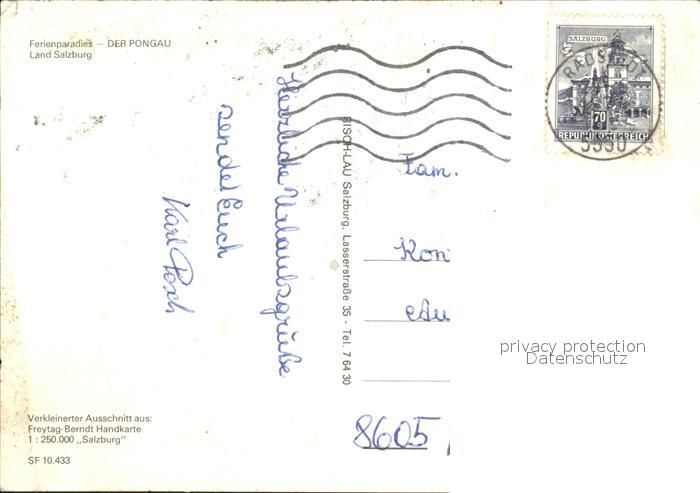 Ferienparadies — DER PONGAU
Land Salzburg
Herzliche Urlaubsgrüße
sendet Euch
Karl Posch
RISCH-LAU Salzburg, Lasserstraße 35 - Tel. 7 64 30
SALZBURG
70
REPUBLIK ÖSTERREICH
RADSTADT
5550
Fam.
Kon
8605
privacy protection
Datenschutz
Verkleinerter Ausschnitt aus:
Freytag-Berndt Handkarte
1 : 250.000 „Salzburg"
SF 10.433